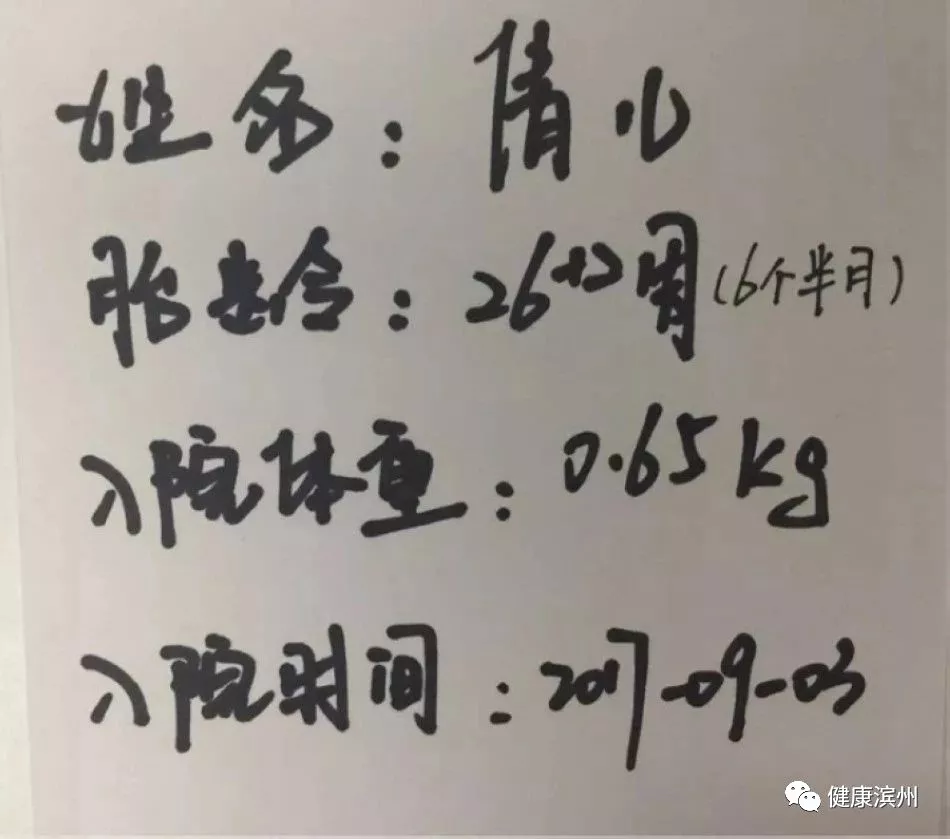 姓名：倩儿
胎龄：26+2周(6个半月)
入院体重：0.65kg
入院时间：2017-09-03
健康滨州